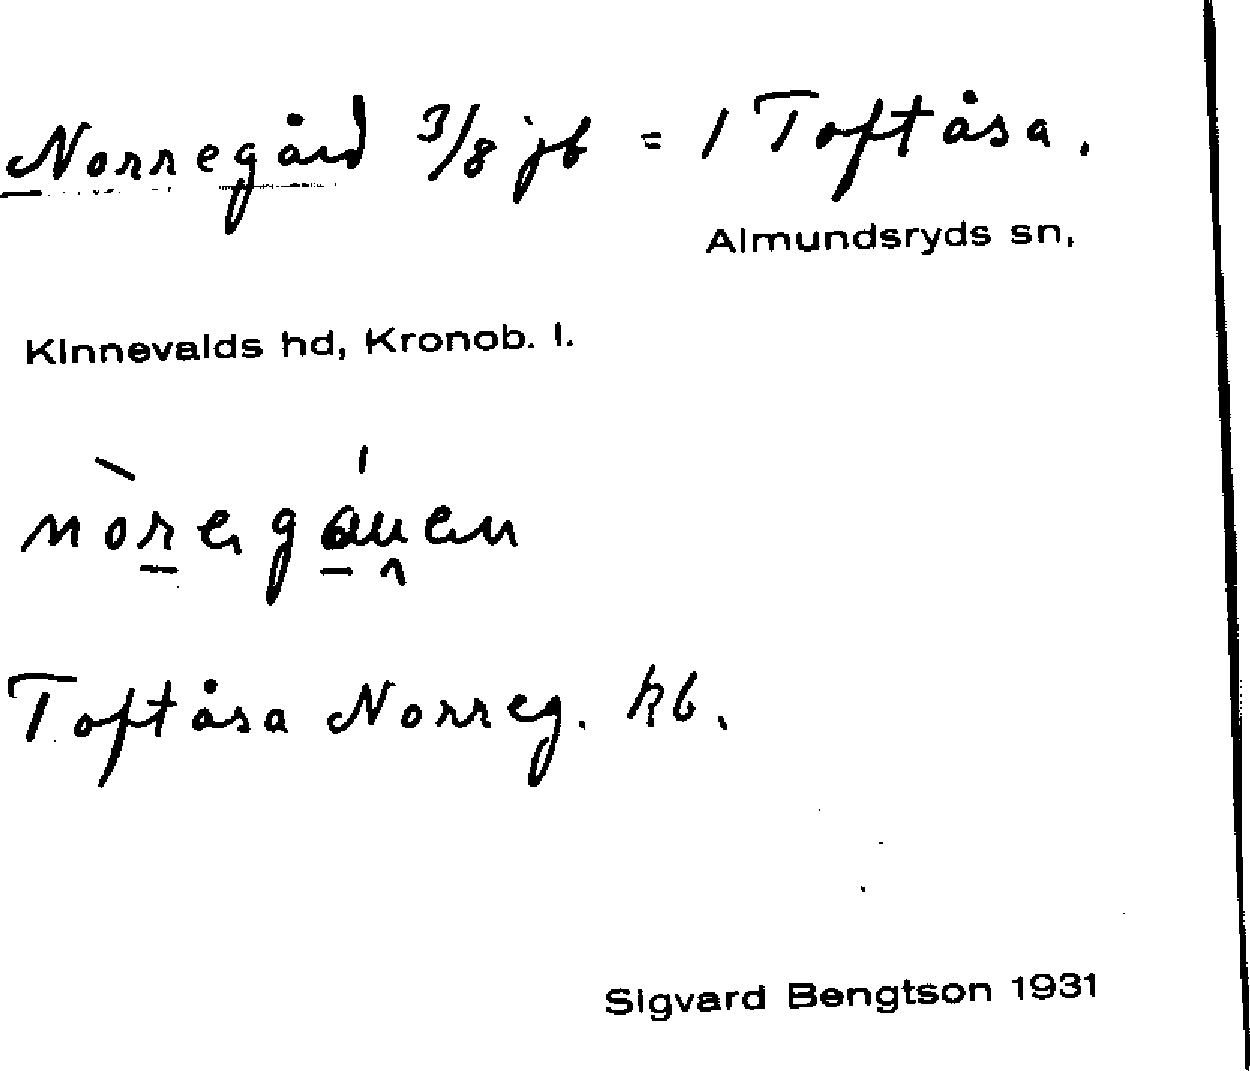 Norregård 3/8 jb = 1 Toftåsa.
Almundsryds sn,
Kinnevalds hd, Kronob. l.
Toftåsa Norreg. kb.
Sigvard Bengtson 1931